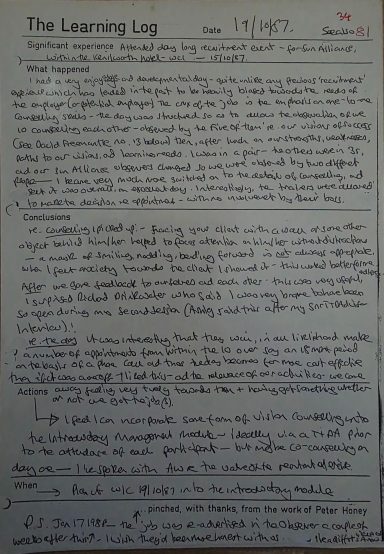 The Learning Log Date 19/10/87. 34
81
Significant experience Attended day long recruitment event - for Sun Alliance,
within the Kenilworth Hotel - WC1 - 15/10/87.
What happened
I had a very enjoyable and developmental day - quite unlike any previous 'recruitment'
experience which was loaded in the fact to be heavily biased towards the needs of
the employer (or potential employer). The crux of the job is the emphasis on one-to-one
counselling skills - the day was structured so as to allow the observation of we
10 counselling each other - observed by the five of them i.e. our vision of success
(see David below) then, after lunch on our strengths, weaknesses,
paths to our vision, and learning needs. I was in a pair - the others were in 3s,
and our Sun Alliance observers changed so we were observed by two different
people - I became very much more switched on to the details of counselling, and
felt it was overall, an excellent day. Interestingly, the trainers were allowed
to make the decision re appointments - with no involvement by their boss.
Conclusions
re. counselling I picked up: - facing your client with a wall or some other
object behind him/her helped to focus attention on him/her without distractions
- a mask of smiling, nodding, bending forward is not always appropriate,
when I felt anxiety towards the client I showed it - this worked better for me
After we gave feedback to ourselves and each other - this was very useful
I surpised Richard Drinkwater who said I was very brave to have been
so open during my second session (Andy said this after my
Interview).!
re. the day It was interesting that they will, in all likelihood make
a number of appointments from within the 10 over say an 18 month period
on the basis of a phone call and that the day becomes far more cost effective
than if it was a one off - I liked this - and the relevance of our activities - we came
Actions away feeling very lively towards them + having got something whether
or not we got the job(s)
I feel I can incorporate some form of Vision Counselling into
the Introductory Management module - ideally via a prior
to the attendance of each participant - but maybe co-counselling on
day one - I've spoken with re the
When Plan of W/C 19/10/87 into the introductory module
...pinched, with thanks, from the work of Peter Honey
P.S. Jan 17 1988 - the job was re-advertised in the Observer a couple of
weeks after this - I wish they'd been more honest with us